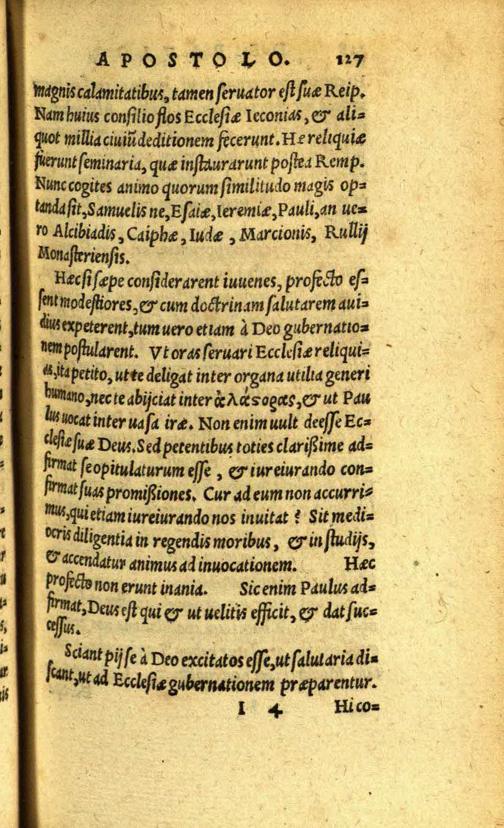 APOSTOLO. 127
magnis calamitatibus, tamen seruator est suæ Reip.
Nam huius consilio flos Ecclesiæ Ieconias, & ali=
quot millia ciuiũ deditionem fecerunt. Hæ reliquiæ
fuerunt seminaria, quæ instaurarunt postea Remp.
Nunc cogites animo quorum similitudo magis op=
tanda sit, Samuelis ne, Esaiæ, Ieremiæ, Pauli, an ue=
ro Alcibiadis, Caiphæ, Iudæ, Marcionis, Rullij
Monasteriensis.
Hæc si sæpe considerarent iuuenes, profecto es=
sent modestiores, & cum doctrinam salutarem aui=
dius expeterent, tum uero etiam à Deo gubernatio=
nem postularent. Vt oras seruari Ecclesiæ reliqui=
as, ita petito, ut te deligat inter organa utilia generi
humano, nec te abijciat inter ἀλάστορας, & ut Pau
lus uocat inter uasa iræ. Non enim uult deesse Ec=
clesiæ suæ Deus. Sed petentibus toties clarißime ad=
firmat se opitulaturum esse, & iureiurando con=
firmat suas promißiones. Cur ad eum non accurri=
mus, qui etiam iureiurando nos inuitat? Sit medi=
ocris diligentia in regendis moribus, & in studijs,
& accendatur animus ad inuocationem. Hæc
profecto non erunt inania. Sic enim Paulus ad=
firmat, Deus est qui & ut uelitis efficit, & dat suc=
cessus.
Sciant pij se à Deo excitatos esse, ut salutaria di=
scant, ut ad Ecclesiæ gubernationem præparentur.
I 4 Hi co=